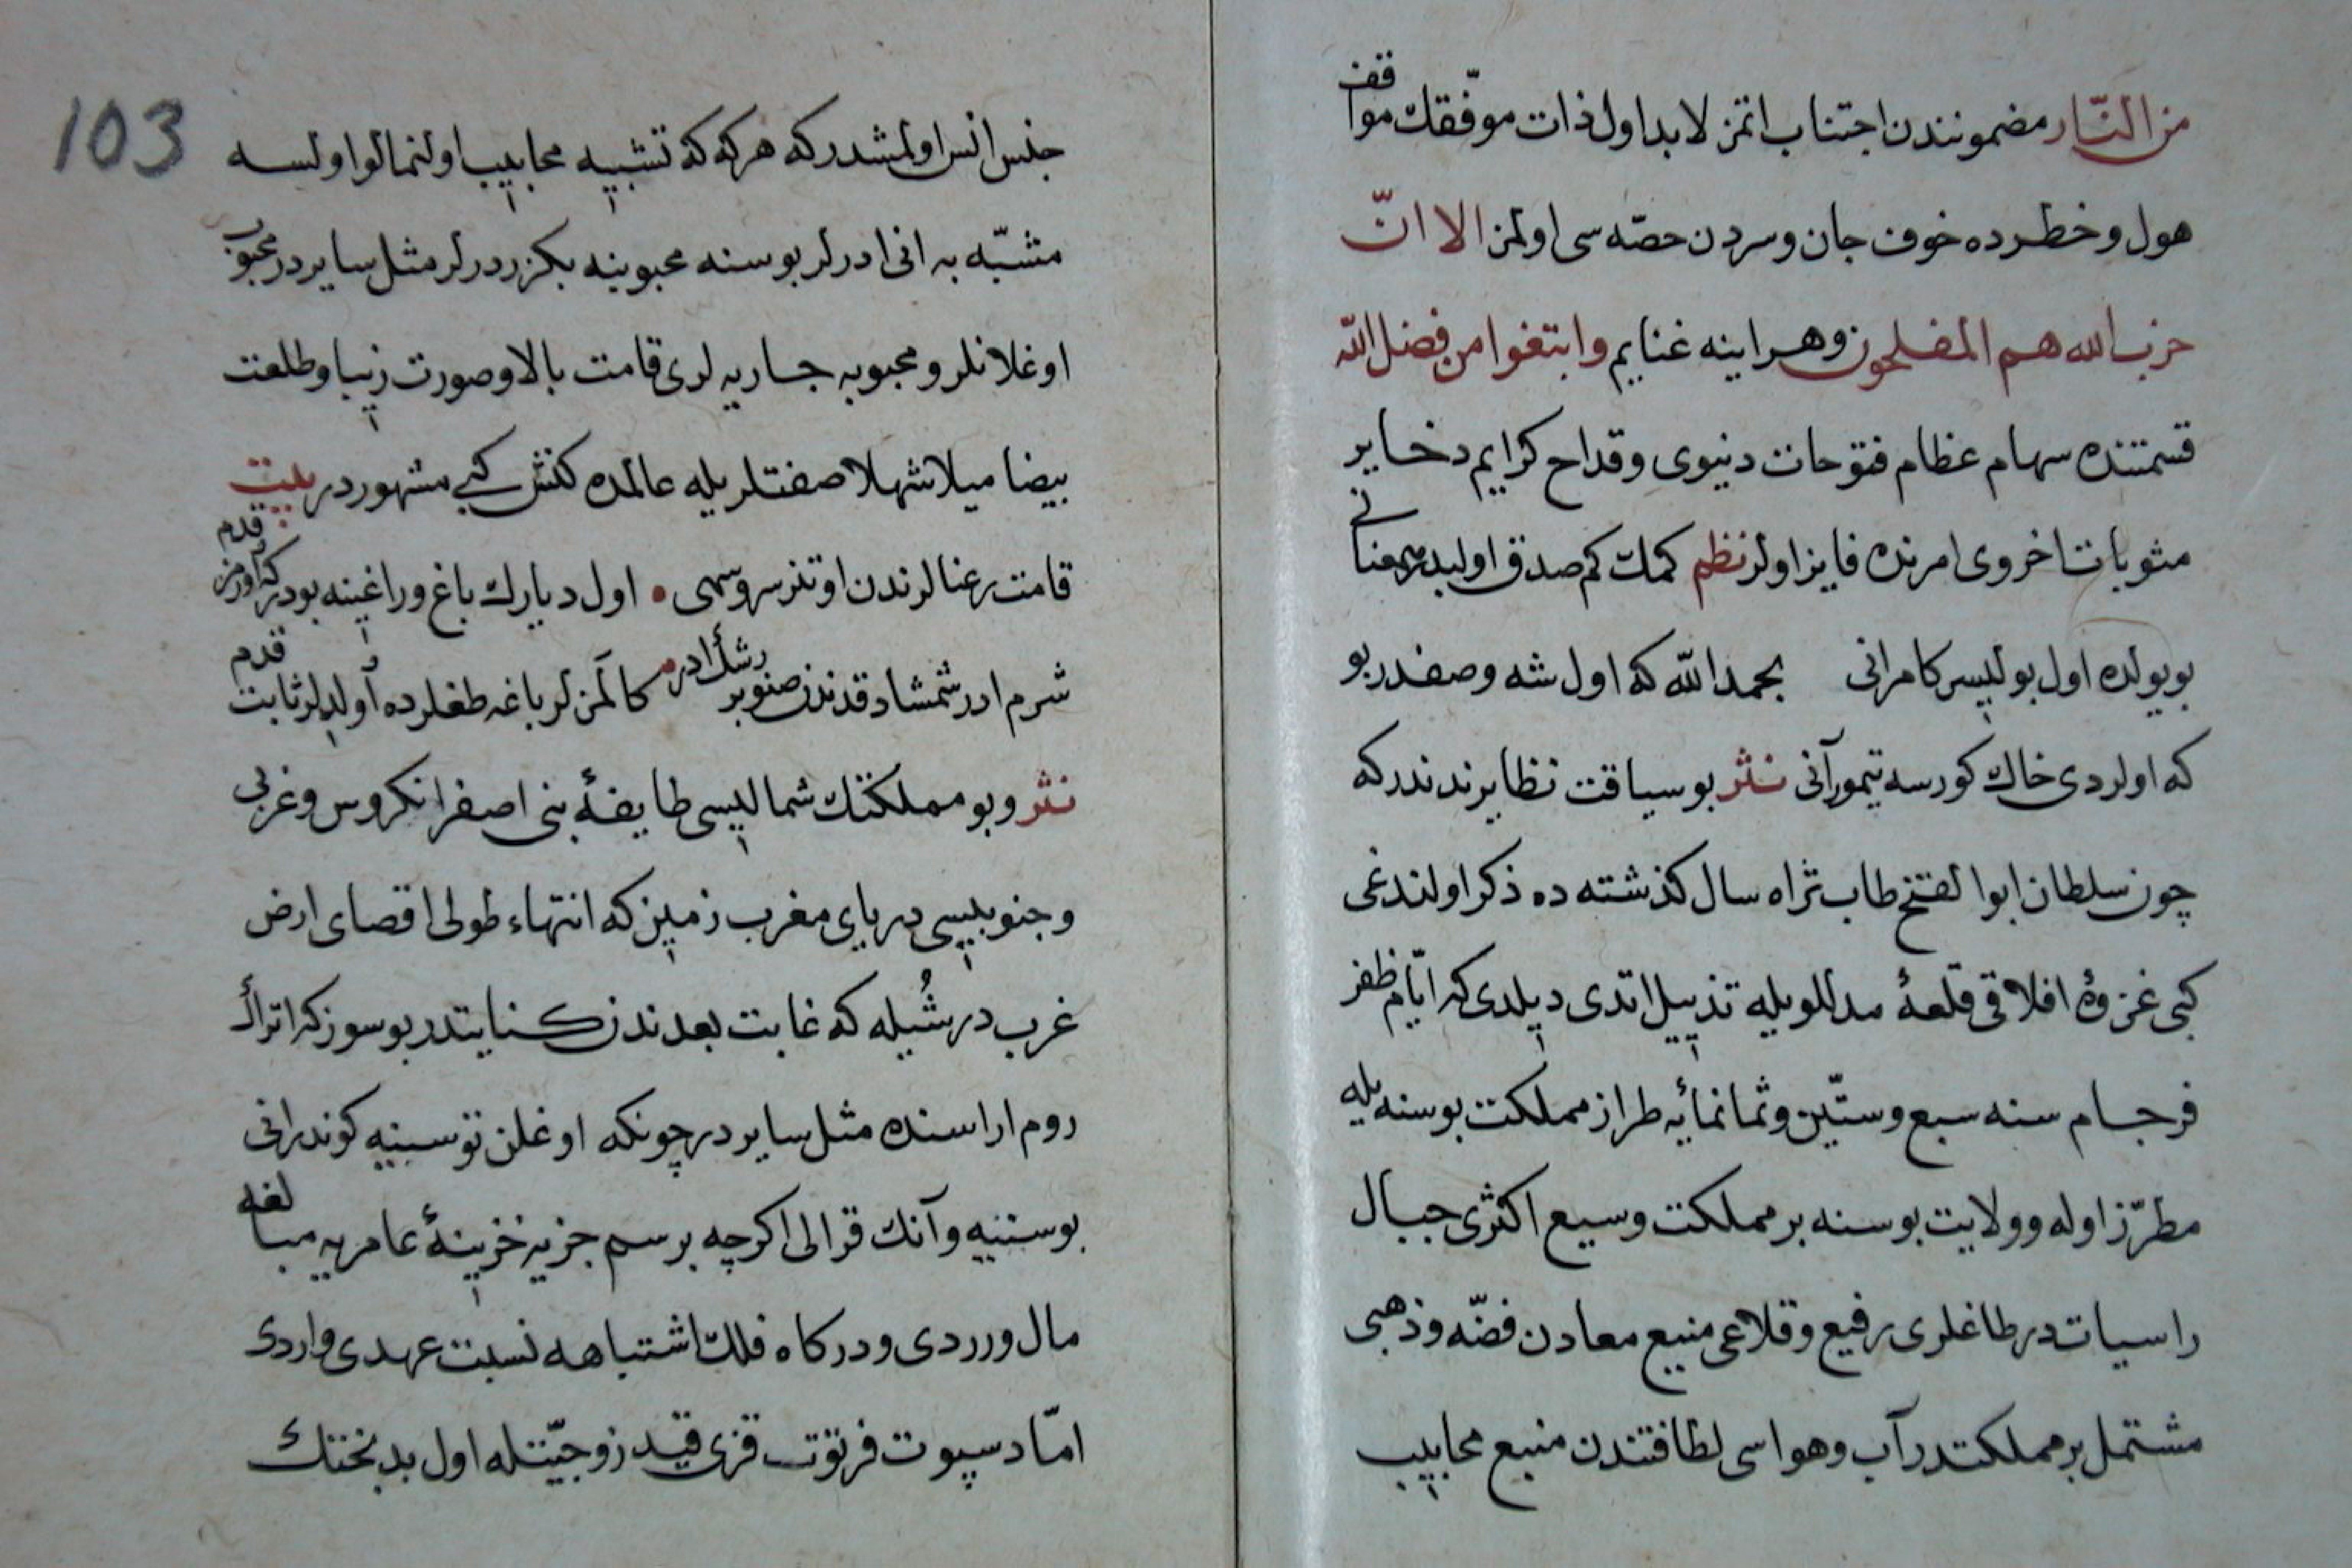 من النّار مضمونندن اجتناب اتمز لابد اول ذات موفّقك مواقف
هول و خطرده خوف جان و سردن حصّه سی اولمز الا انّ
حزب الله هم المفلحون و هر اینه غنایم وابتغوا من فضل الله
قسمتنده سهام عظام فتوحات دنیوی و قداح کرایم دخایر
مثوبات اخروی امرنده فایز اولر نظم کمك کم صدق اولیدر همعنانی
بو یولده اول بولیسر کامرانی بحمدالله که اول شه وصفدر بو
که اولردی خاك کورسه تیمور آنی نثر بو سیاقت نظایرندندر که
چون سلطان ابوالفتح طاب ثراه سال کذشته ده ذکر اولندغی
کبی غزوۀ افلاقی قلعۀ مدللو بیله تذییل اتدی دیلدی که ایّام ظفر
فرجام سنه سبع وستّین وثمانمائه طراز مملکت بوسنه بیله
مطرّز اوله و ولایت بوسنه بر مملکت وسیع اکثری جبال
راسیات در طاغلری رفیع و قلاعی منیع معادن فضّه و ذهبی
مشتمل بر مملکتدر آب و هواسی لطافتندن منبع محابیب
103
جنس انس اولمشدر که هر که که تشبیه محابیب اولنمالو اولسه
مشبّه به انی ادرلر بوسنه محبوبینه بکزر درلر مثل سایر در محبوب
اوغلانلر و محبوبه جاریه لری قامت بالا و صورت زیبا و طلعت
بیضا میلا شهلا صفتلر بیله عالمده کنش کبی مشهور در بیت
قامت رعنالرندن اوتنر سرو سهی • اول دیارك باغ و راغینه بودر که اورمز قدم
شرم ادر شمشاد قدندن صنوبر رشك ادر کالمن لر باغه طغلرده اولدیلر ثابت قدم
نثر و بو مملکتك شمالیسی طایفۀ بنی اصفر انکروس و غربی
و جنوبیسی دریای مغرب زمین که انتهاء طولی اقصای ارض
غرب در شُیله که غایت بعدندن کنایتدر بو سوز که اتراك
روم اراسنده مثل سایر در چونکه اوغلن توسنیه کوندر انی
بوسنیه و آنك قرالی اکرچه برسم جزیه خزینۀ عامریه مبالغه
مال ورردی و درکاه فلك اشتباهه نسبت عهدی واردی
امّا دسپوت فرتوت قزی قید زوجیّتله اول بدبختك